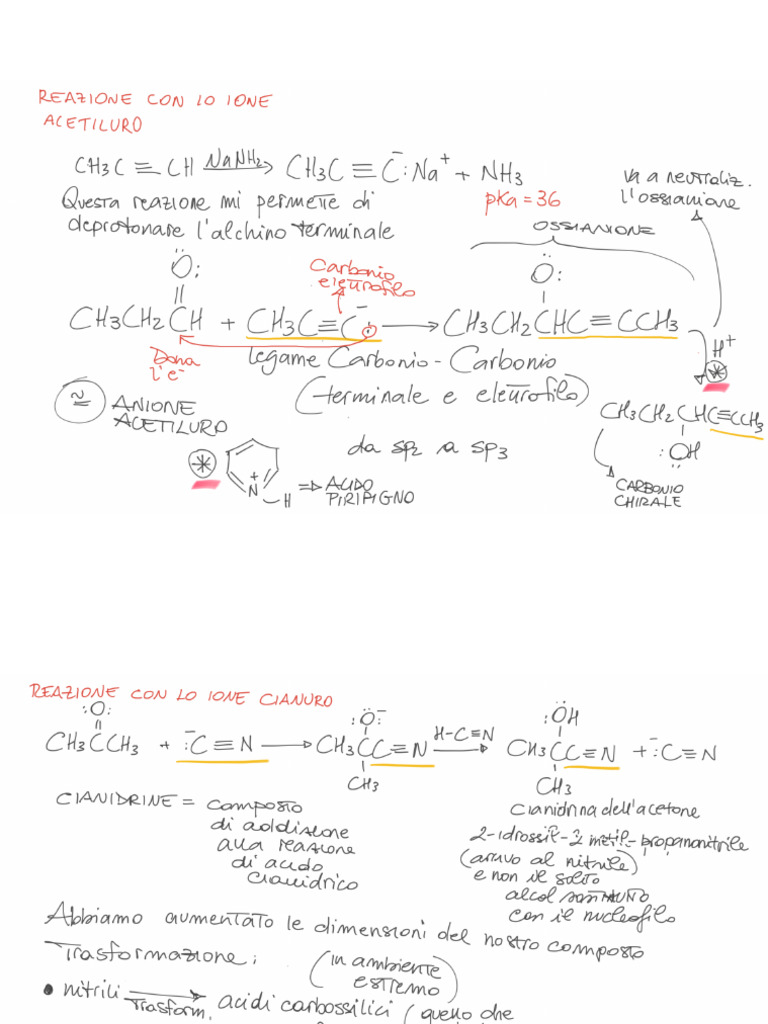 REAZIONE CON LO IONE
ACETILURO
CH3C ≡ CH NaNH2 → CH3C ≡ C:⁻ Na⁺ + NH3
Questa reazione mi permette di
deprotonare l'alchino terminale
pka = 36
Va a neutraliz.
l'ossianione
OSSIANIONE
Carbonio
elettrofilo
Ö:
CH3CH2CH + CH3C≡C⁻ → CH3CH2CHC≡CCH3
Ö:
H⁺
Dona
l'e⁻
legame Carbonio-Carbonio
(terminale e elettrofilo)
≃ ANIONE
ACETILURO
da sp2 a sp3
CH3CH2CHC≡CCH3
:OH
CARBONIO
CHIRALE
* N⁺-H ⇒ ACIDO
PIRIPIGNO
REAZIONE CON LO IONE CIANURO
:O:
CH3CCH3 + :⁻C≡N → CH3CC≡N H-C≡N → CH3CC≡N + :⁻C≡N
:Ö⁻
CH3
:ÖH
CH3
CIANIDRINE = composto
di addizione
alla reazione
di acido
cianidrico
cianidrina dell'acetone
2-idrossil-2 metil-propanonitrile
(arrivo al nitrile)
e non il solito
alcol
con il nucleofilo
Abbiamo aumentato le dimensioni del nostro composto
Trasformazione:
(in ambiente
estremo)
• nitrili → Trasform. acidi carbossilici (quello che